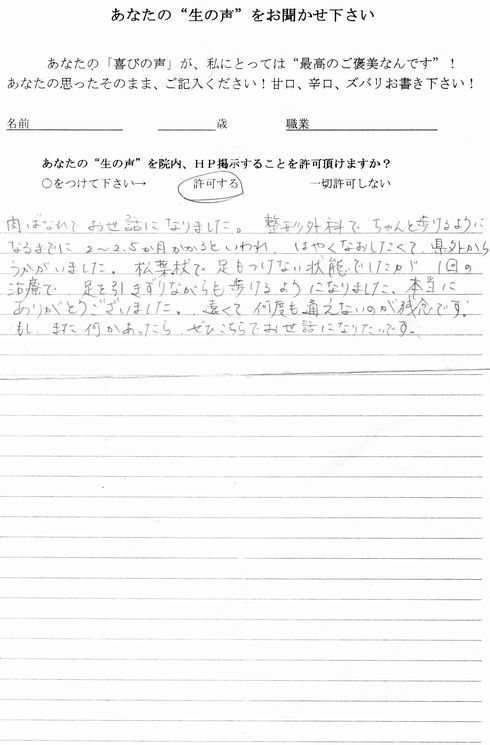 あなたの“生の声”をお聞かせ下さい
あなたの「喜びの声」が、私にとっては“最高のご褒美なんです”！
あなたの思ったそのまま、ご記入ください！甘口、辛口、ズバリお書き下さい！
名前 歳 職業
あなたの“生の声”を院内、ＨＰ掲示することを許可頂けますか？
○をつけて下さい→ 許可する 一切許可しない
肉ばなれでお世話になりました。整形外科でちゃんと歩けるように
なるまでに2～2.5か月かかるといわれ、はやくなおしたくて、県外から
うかがいました。松葉杖で足もつけない状態でしたが 1回の
治療で、足を引きずりながらも歩けるようになりました、本当に
ありがとうございました。遠くて何度も通えないのが残念です。
もし、また何かあったら、ぜひこちらでお世話になりたいです。